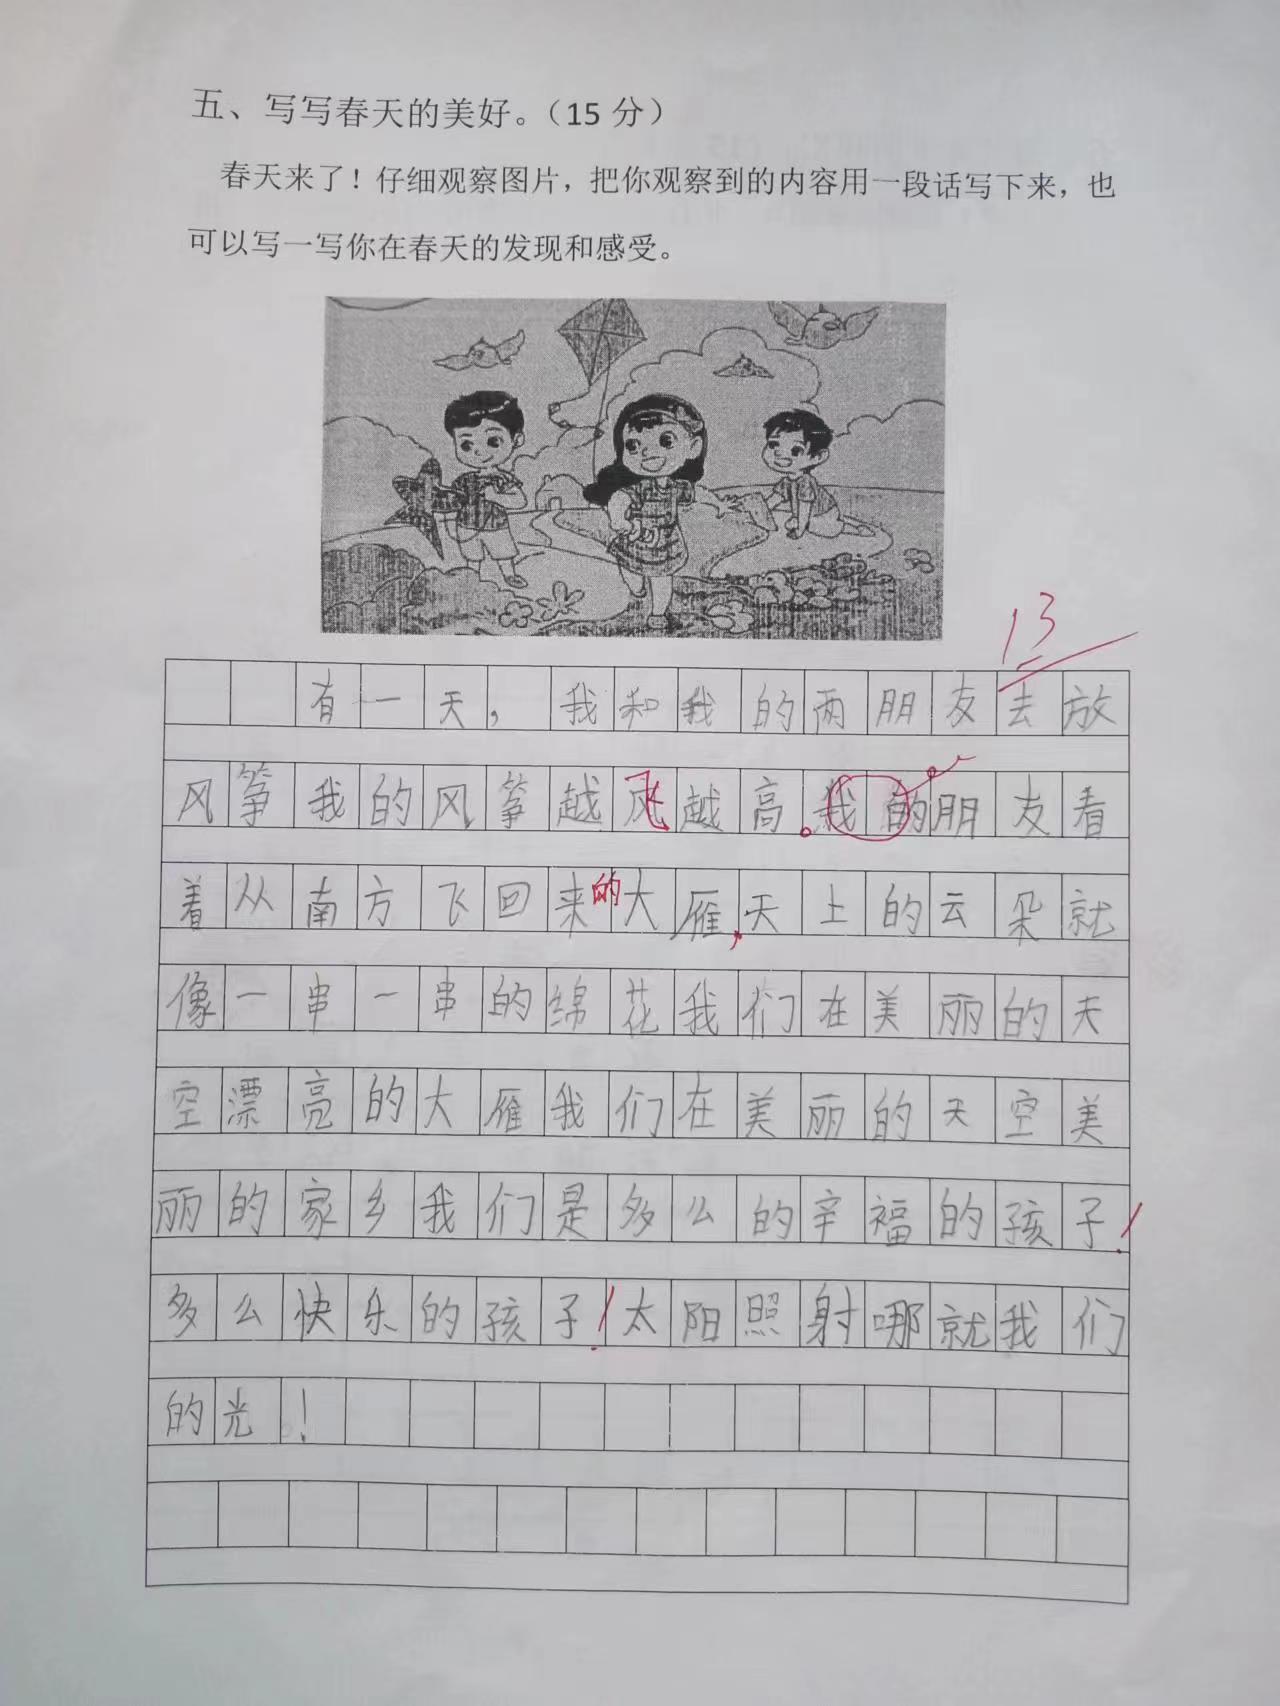 五、写写春天的美好。（15 分）
春天来了！仔细观察图片，把你观察到的内容用一段话写下来，也
可以写一写你在春天的发现和感受。
13
有一天，我和我的两朋友去放
风筝我的风筝越飞越高。我的朋友看
着从南方飞回来的大雁，天上的云朵就
像一串一串的绵花我们在美丽的天
空漂亮的大雁我们在美丽的天空美
丽的家乡我们是多么的辛福的孩子！
多么快乐的孩子！太阳照射哪就我们
的光！